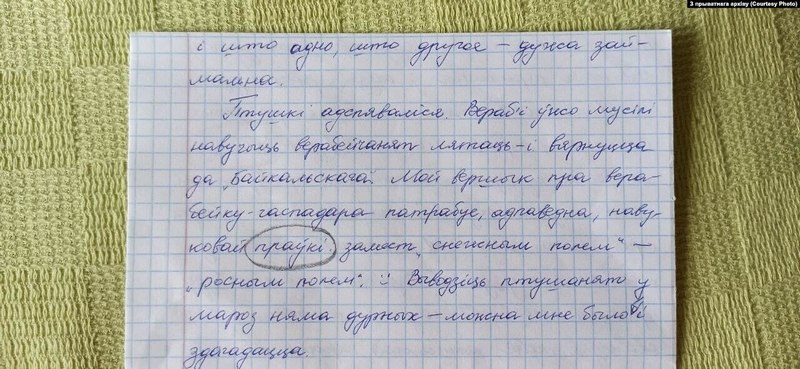 З прыватнага архіву (Courtesy Photo)
і што адно, што другое – дужа зай-
мальна.
Птушкі адспяваліся. Вераб'і ўжо мусілі
навучыць верабейчанят лятаць – і вярнуцца
да „Байкальскага". Мой вершык пра вера-
бейку-гаспадара патрабуе, адпаведна, наву-
ковай праўкі: замест „снежным полем" —
„росным полем". :: Выводзіць птушанят у
мароз няма дурных – можна мне было б і
здагадацца.